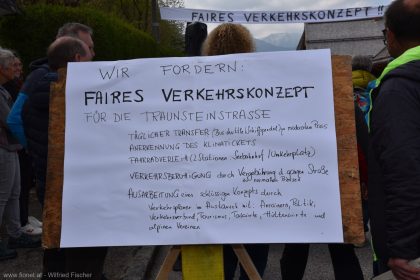 FAIRES VERKEHRSKONZEPT !!
WIR FORDERN:
FAIRES VERKEHRSKONZEPT
FÜR DIE TRAUNSTEINSTRASSE
TÄGLICHER TRANSFER (Bus zu moderaten Preis
ANERKENNUNG DES KLIMATICKETS
FAHRRADVERLEIH (2 Stationen Seebahnhof / Umkehrplatz)
VERKEHRSBERUHIGUNG durch Straße
AUSARBEITUNG eines schlüssigen Konzepts durch
Verkehrsplaner im Austausch mit: Anrainern, Politik,
Verkehrsverbund, Tourismus, Taxiwirte, Hüttenwirte und
alpinen Vereinen
www.fionet.at - Wilfried Fischer